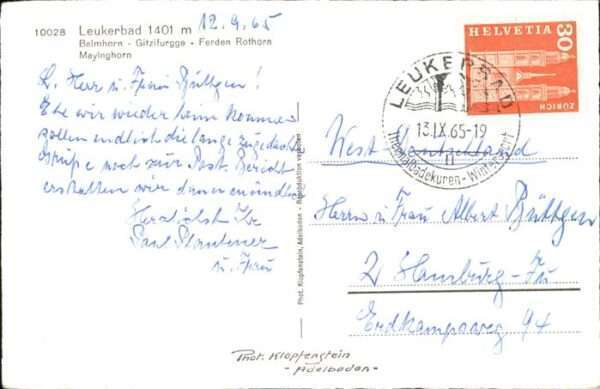 10028 Leukerbad 1401 m 12.9.65
Balmhorn - Gitzifurgge - Ferden Rothorn
Mayinghorn
L. Herr u. Frau Büttgen!
Ehe wir wieder heim kommen
sollen endlich die lange zugedachten
Grüsse noch zur Post. Bericht
erstatten wir dann mündlich
Herzlichst Ihr
Paul
u. Frau
Phot. Klopfenstein, Adelboden - Reproduktion verboten
HELVETIA
30
ZÜRICH
LEUKERBAD
13.IX.65-19
Thermalbadekuren - Wintersport
West Deutschland
Herrn u. Frau Albert Büttgen
2 Hamburg - Fu
Erdkampsweg 94
Phot. Klopfenstein
- Adelboden -